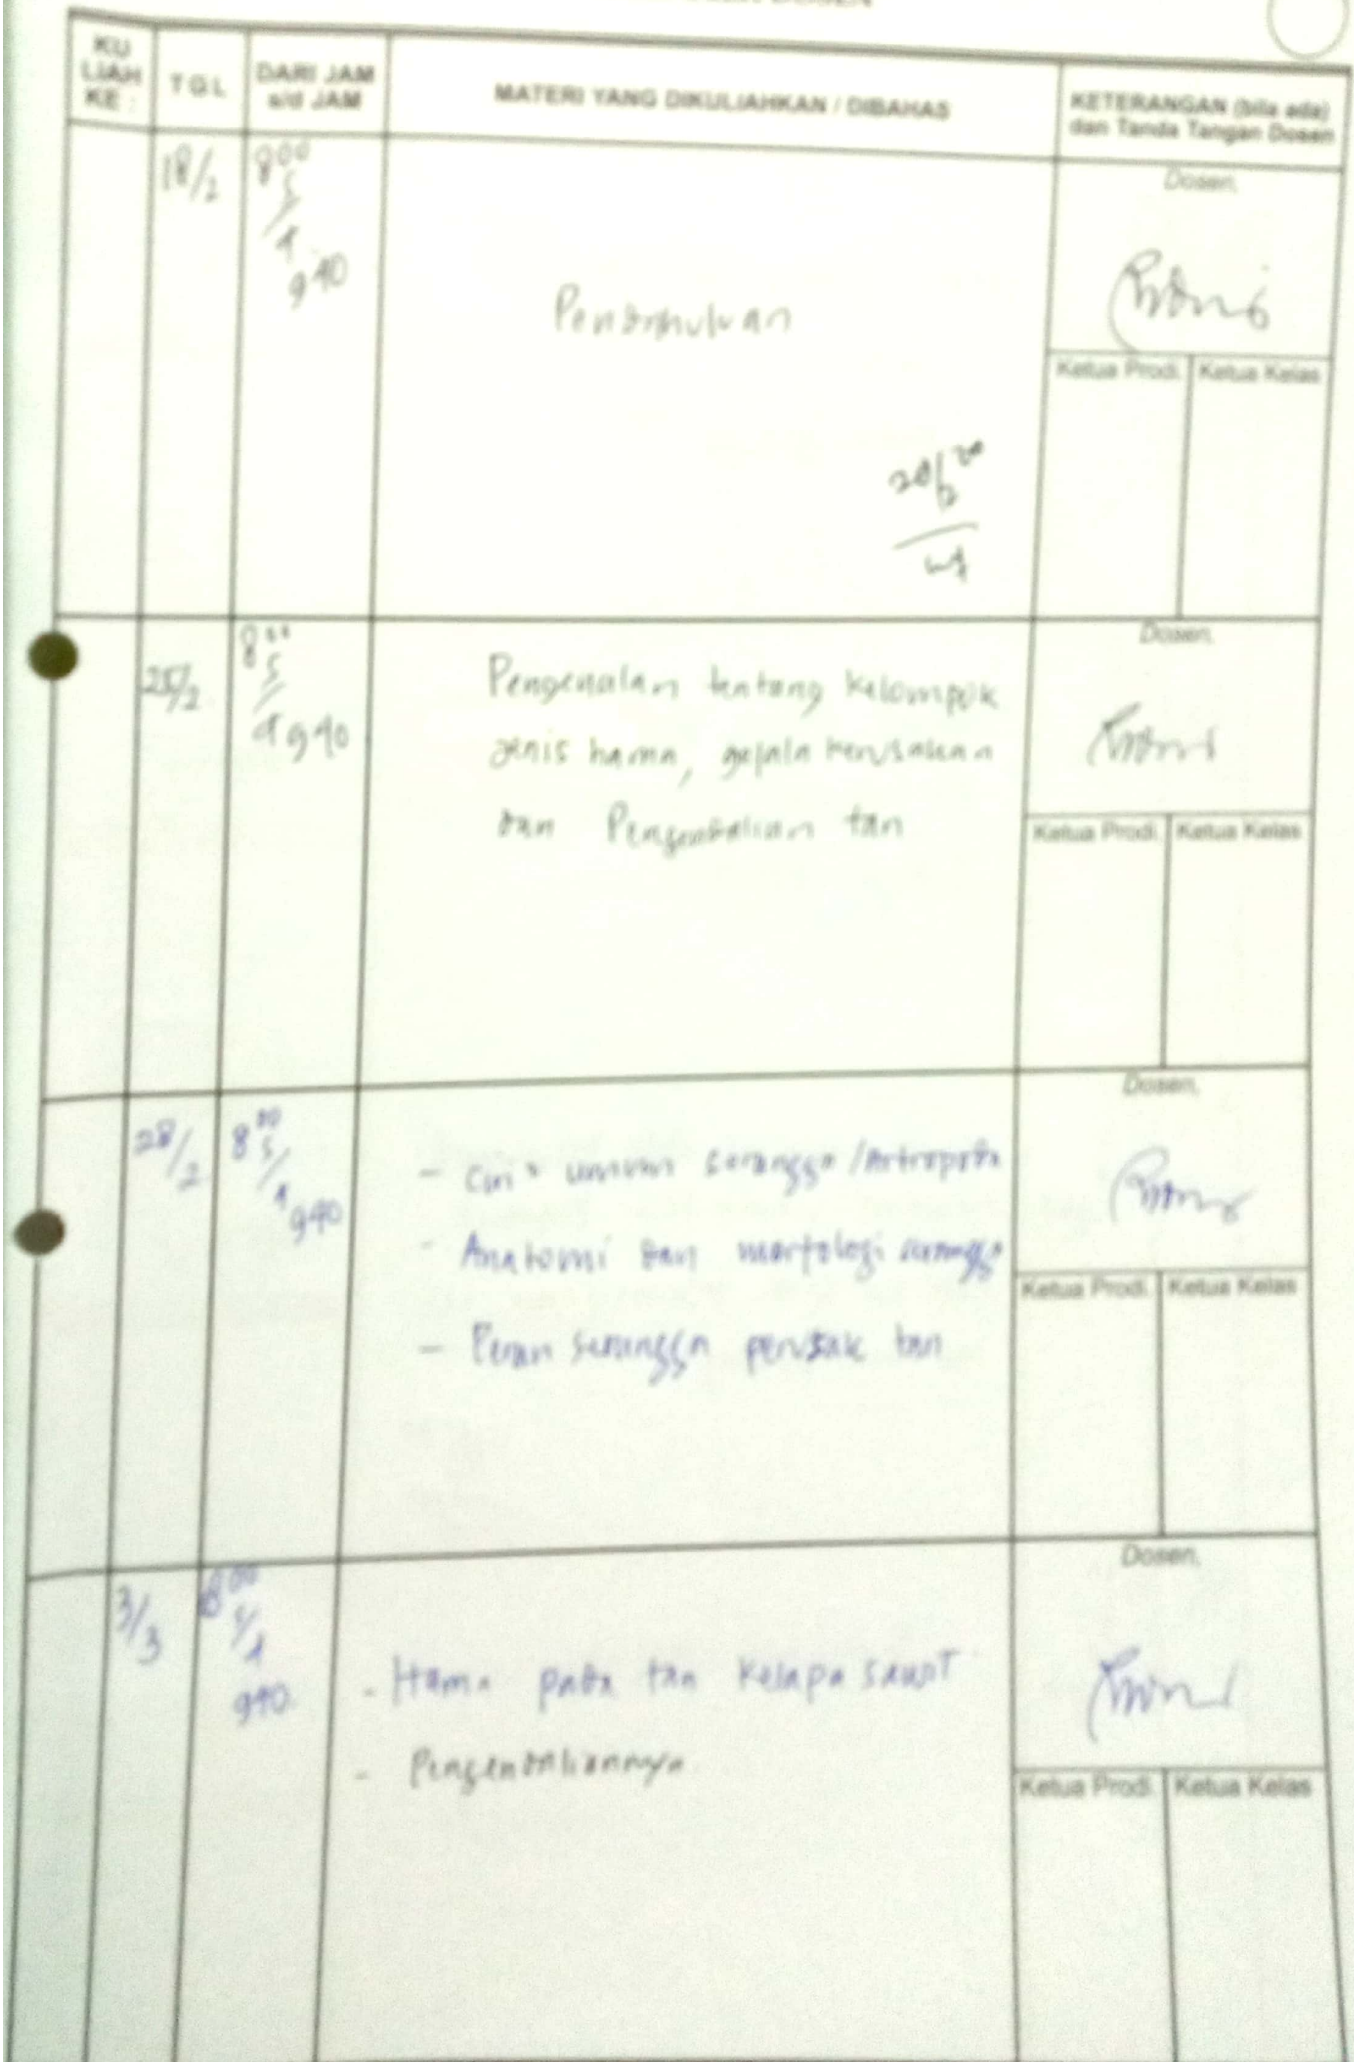 DOSEN
KU
LIAH
KE :
T G L
DARI JAM
s/d JAM
MATERI YANG DIKULIAHKAN / DIBAHAS
KETERANGAN (bila ada)
dan Tanda Tangan Dosen
18/2
8 00
s/d
9 40
Pendahuluan
Dosen,
Ketua Prodi.
Ketua Kelas
25/2
8 00
s/d
9 40
Pengenalan tentang kelompok
jenis hama, gejala kerusakan
dan Pengendalian tan
Dosen,
Ketua Prodi.
Ketua Kelas
28/2
8 00
s/d
9 40
- Ciri2 umum serangga /Artropoda
- Anatomi dan morfologi serangga
- Peran serangga perusak tan
Dosen,
Ketua Prodi.
Ketua Kelas
3/3
8 00
s/d
9 40
- Hama pada tan Kelapa sawit
- Pengendaliannya
Dosen,
Ketua Prodi.
Ketua Kelas